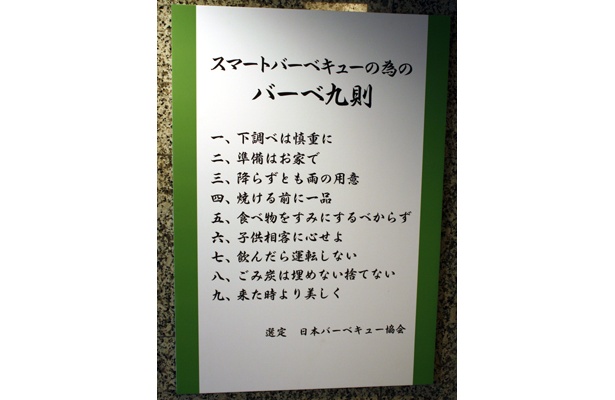 スマートバーベキューの為の
バーベ九則
一、下調べは慎重に
二、準備はお家で
三、降らずとも雨の用意
四、焼ける前に一品
五、食べ物をすみにするべからず
六、子供相客に心せよ
七、飲んだら運転しない
八、ごみ炭は埋めない捨てない
九、来た時より美しく
選定 日本バーベキュー協会